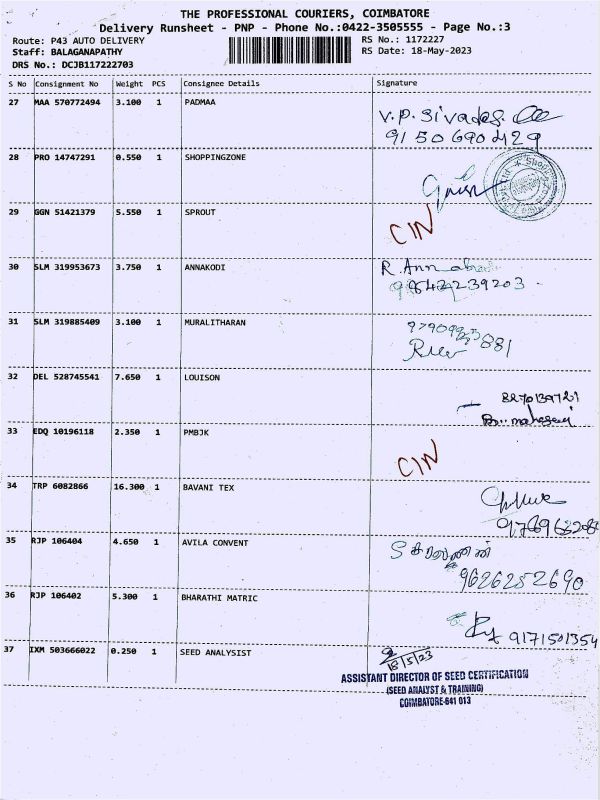 THE PROFESSIONAL COURIERS, COIMBATORE
Delivery Runsheet - PNP - Phone No.:0422-3505555 - Page No.:3
Route: P43 AUTO DELIVERY
RS No.: 1172227
Staff: BALAGANAPATHY
RS Date: 18-May-2023
DRS No.: DCJB117222703
S No Consignment No Weight PCS Consignee Details Signature
27 MAA 570772494 3.100 1 PADMAA
V.P. Sivades.
9150690429
28 PRO 14747291 0.550 1 SHOPPINGZONE
29 GGN 51421379 5.550 1 SPROUT
CIN
30 SLM 319953673 3.750 1 ANNAKODI
R. Ann
31 SLM 319885409 3.100 1 MURALITHARAN
881
32 DEL 528745541 7.650 1 LOUISON
33 EDQ 10196118 2.350 1 PMBJK
CIN
34 TRP 6082866 16.300 1 BAVANI TEX
35 RJP 106404 4.650 1 AVILA CONVENT
S சரவணன்
9626252690
36 RJP 106402 5.300 1 BHARATHI MATRIC
9171501354
37 IXM 503666022 0.250 1 SEED ANALYSIST
18/5/23
ASSISTANT DIRECTOR OF SEED CERTIFICATION
(SEED ANALYST & TRAINING)
COIMBATORE-641 013